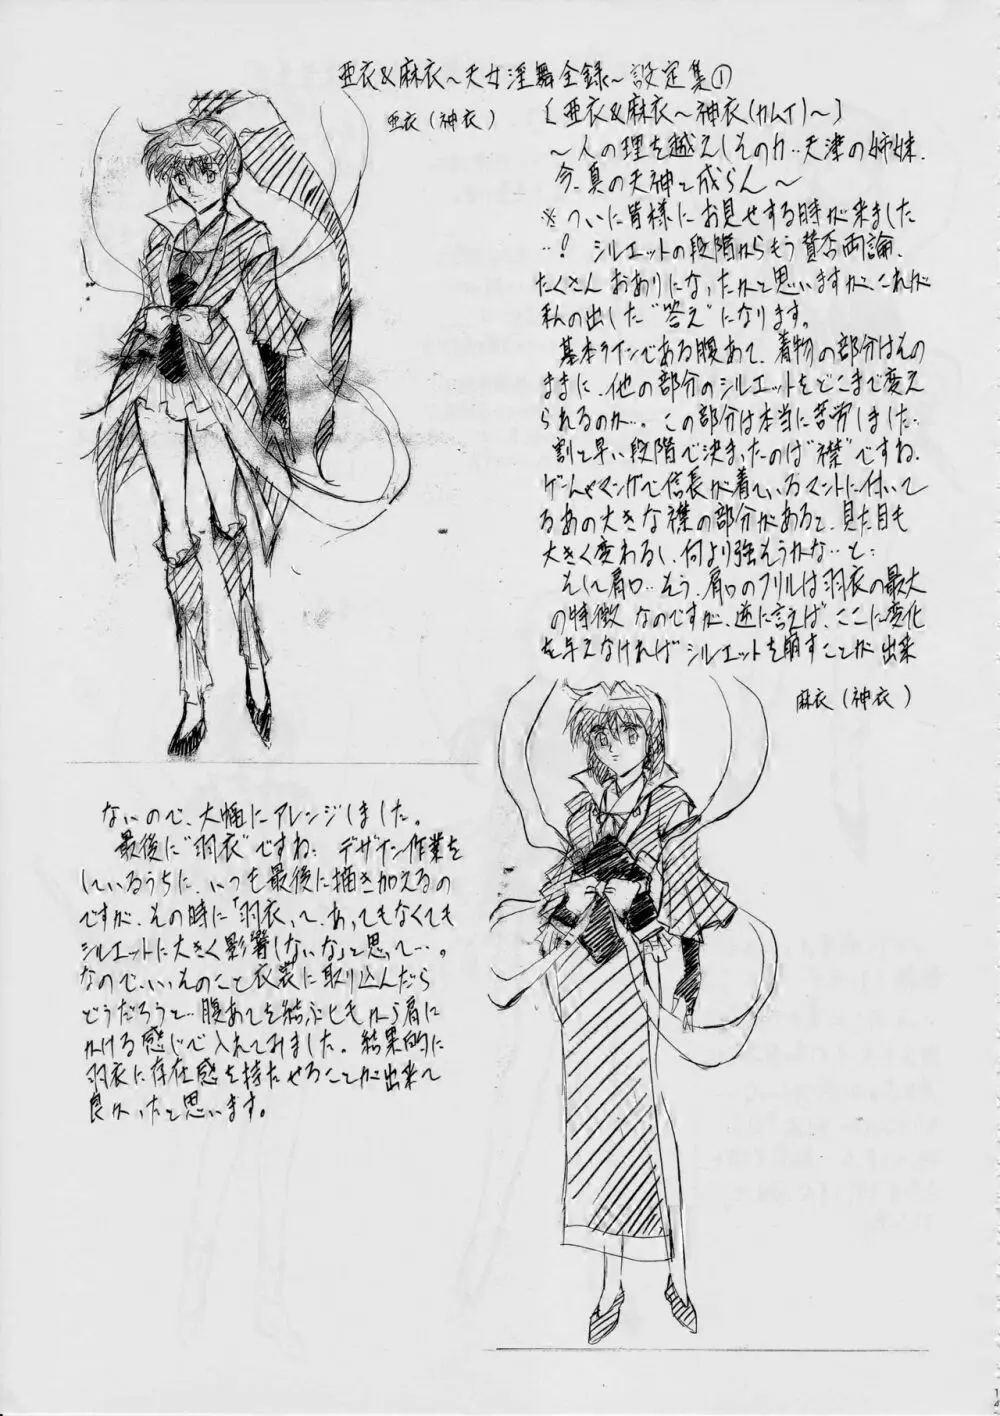 亜衣&麻衣～天女淫舞全録～設定集①
亜衣(神衣)
[亜衣&麻衣～神衣(カムイ)～]
～人の理を越えしその力‥天津の姉妹、
今、真の天神と成らん～
※ついに皆様にお見せする時が来ました
‥! シルエットの段階からもう賛否両論、
たくさんおありになったかと思いますが、これが
私の出した"答え"になります。
基本ラインである腹あて、着物の部分はその
ままに、他の部分のシルエットをどこまで変え
られるのか…。この部分は本当に苦労しました‥
割と早い段階で決まったのは"襟"ですね。
ゲームやマンガで信長が着ているマントに付いて
るあの大きな襟の部分があると、見た目も
大きく変わるし、何より強そうかな‥と‥
そして肩口‥そう、肩口のフリルは羽衣の最大
の特徴 なのですが、逆に言えば、ここに変化
を与えなければシルエットを崩すことが出来
麻衣(神衣)
ないので、大幅にアレンジしました。
最後に"羽衣"ですね‥ デザイン作業を
しているうちに、いつも最後に描き加えるの
ですが、その時に「羽衣、て、あってもなくても
シルエットに大きく影響しないな」と思って…。
なので、いいそのこと衣装に取り込んだら
どうだろうと‥腹あてを結ぶヒモから肩に
かける感じで入れてみました。結果的に
羽衣に存在感を持たせることが出来て
良かったと思います。